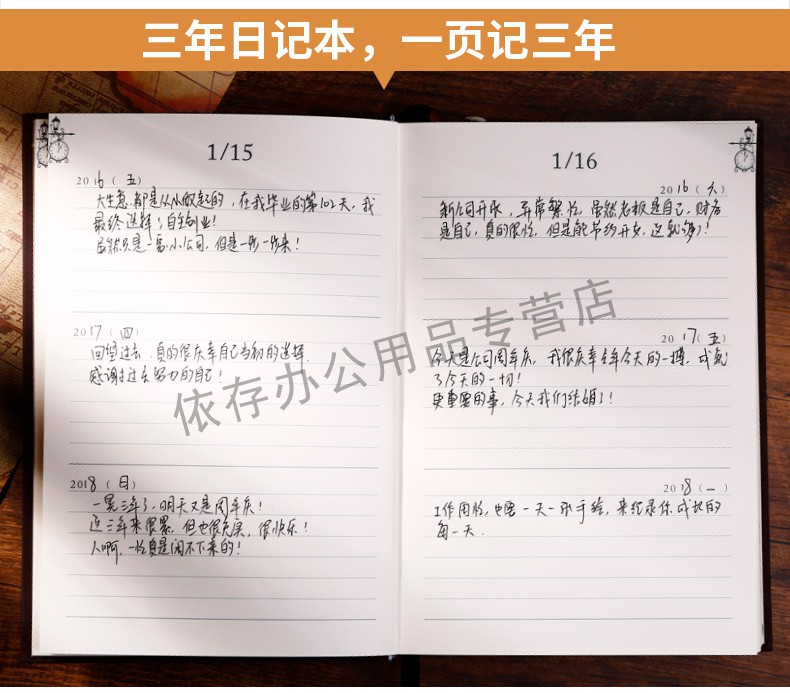 三年日记本，一页记三年
1/15
2016（五）
大生意都是从小做起的，在我毕业的第102天，我
最终选择了自主创业！
虽然只是一家小公司，但是一步一步来！
2017（四）
回望过去，真的很庆幸自己当初的选择
感谢过去努力的自己！
2018（日）
一晃三年了，明天又是周年庆！
这三年来很累，但也很充实，很快乐！
人啊，一忙真是闲不下来的！
1/16
2016（六）
新公司开张，异常繁忙，虽然老板是自己，财务
是自己，真的很忙，但是能节约开支，这就够了！
2017（五）
今天是公司周年庆，我很庆幸去年今天的一搏，成就
了今天的一切！
更重要的事，今天我们结婚了！
2018（一）
工作再忙，也要一天一张手绘，来纪录你成长的
每一天.
依存办公用品专营店